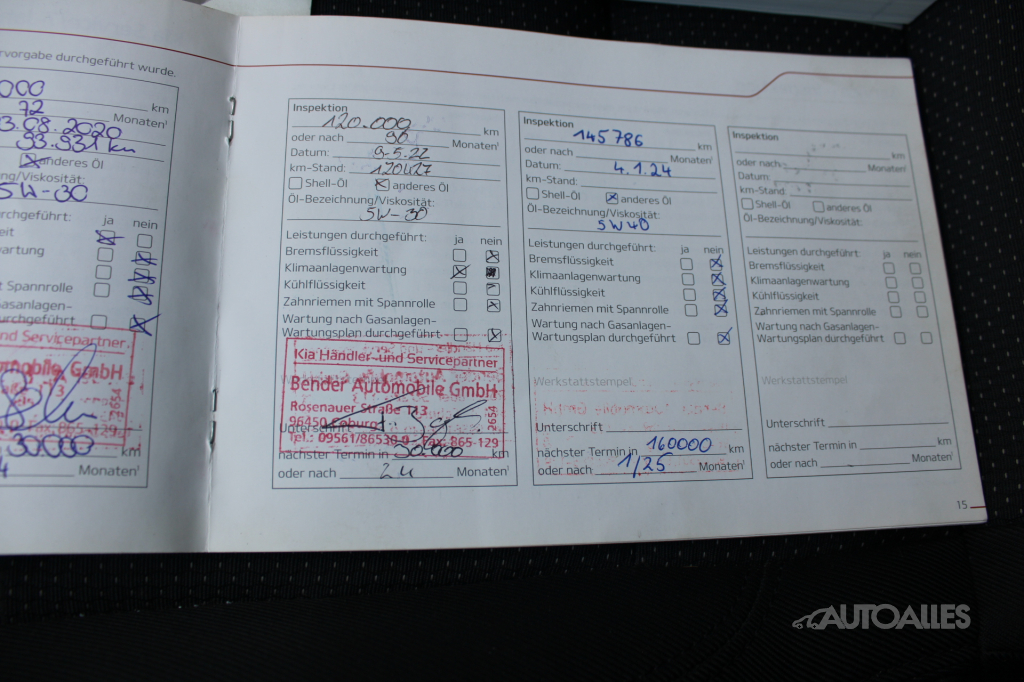 rvorgabe durchgeführt wurde.
000 km
72 Monaten¹
3.08.2020
93.931 km
anderes Öl
ng/Viskosität:
5W-30
rchgeführt:
ja nein
eit
wartung
t Spannrolle
asanlagen-
urchgeführt
nd Servicepartner
omobile GmbH
2654
30000 km
Monaten¹
Inspektion
120.000 km
oder nach 90 Monaten¹
Datum: 9.5.22
km-Stand: 120427
Shell-Öl anderes Öl
Öl-Bezeichnung/Viskosität:
5W-30
Leistungen durchgeführt: ja nein
Bremsflüssigkeit
Klimaanlagenwartung
Kühlflüssigkeit
Zahnriemen mit Spannrolle
Wartung nach Gasanlagen-
Wartungsplan durchgeführt
Kia Händler und Servicepartner
Bender Automobile GmbH
Rosenauer Straße 113
96450 Coburg
Unterschrift
Tel.: 09561/86530-0 Fax: 865-129
2654
nächster Termin in 30000 km
oder nach 24 Monaten¹
Inspektion
145786 km
oder nach Monaten¹
Datum: 4.1.24
km-Stand:
Shell-Öl anderes Öl
Öl-Bezeichnung/Viskosität:
5W40
Leistungen durchgeführt: ja nein
Bremsflüssigkeit
Klimaanlagenwartung
Kühlflüssigkeit
Zahnriemen mit Spannrolle
Wartung nach Gasanlagen-
Wartungsplan durchgeführt
Werkstattstempel
Unterschrift
nächster Termin in 160000 km
oder nach 1/25 Monaten¹
Inspektion
km
oder nach Monaten¹
Datum:
km-Stand:
Shell-Öl anderes Öl
Öl-Bezeichnung/Viskosität:
Leistungen durchgeführt: ja nein
Bremsflüssigkeit
Klimaanlagenwartung
Kühlflüssigkeit
Zahnriemen mit Spannrolle
Wartung nach Gasanlagen-
Wartungsplan durchgeführt
Werkstattstempel
Unterschrift
nächster Termin in km
oder nach Monaten¹
15
AUTOALLES